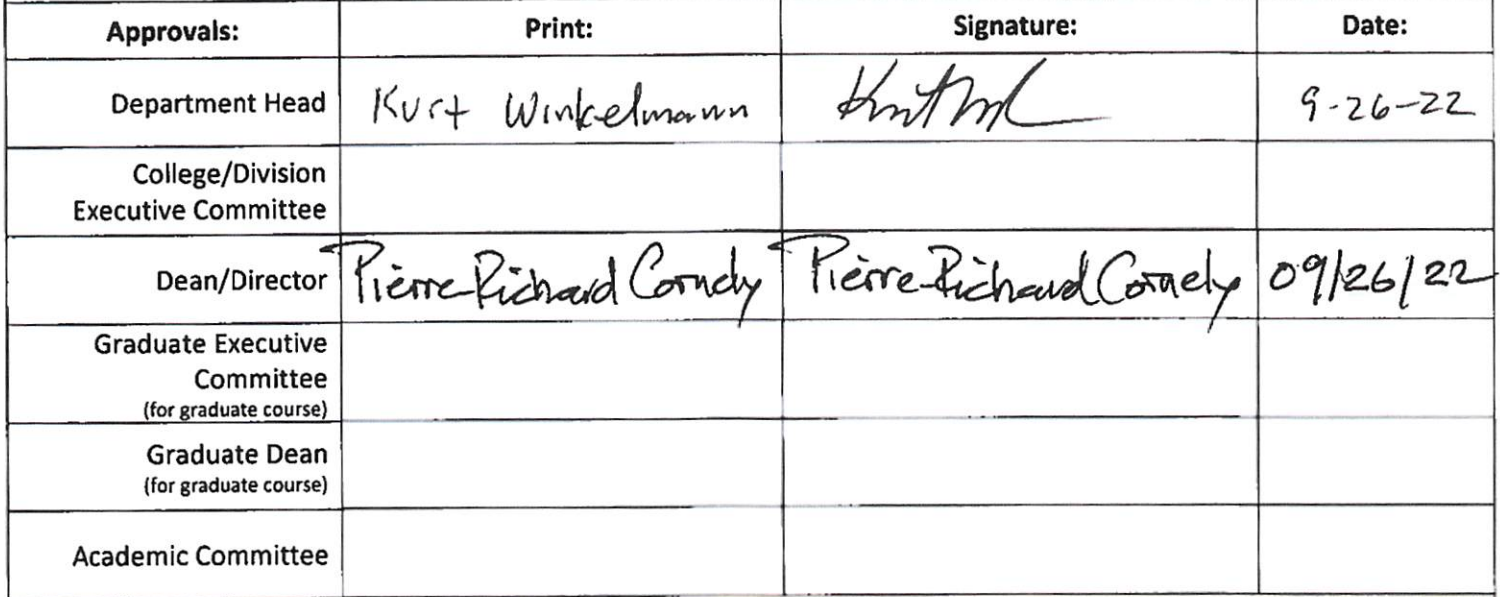 Approvals: Print: Signature: Date:
Department Head Kurt Winkelmann 9-26-22
College/Division
Executive Committee
Dean/Director Pierre-Richard Cornely Pierre-Richard Cornely 09/26/22
Graduate Executive
Committee
(for graduate course)
Graduate Dean
(for graduate course)
Academic Committee